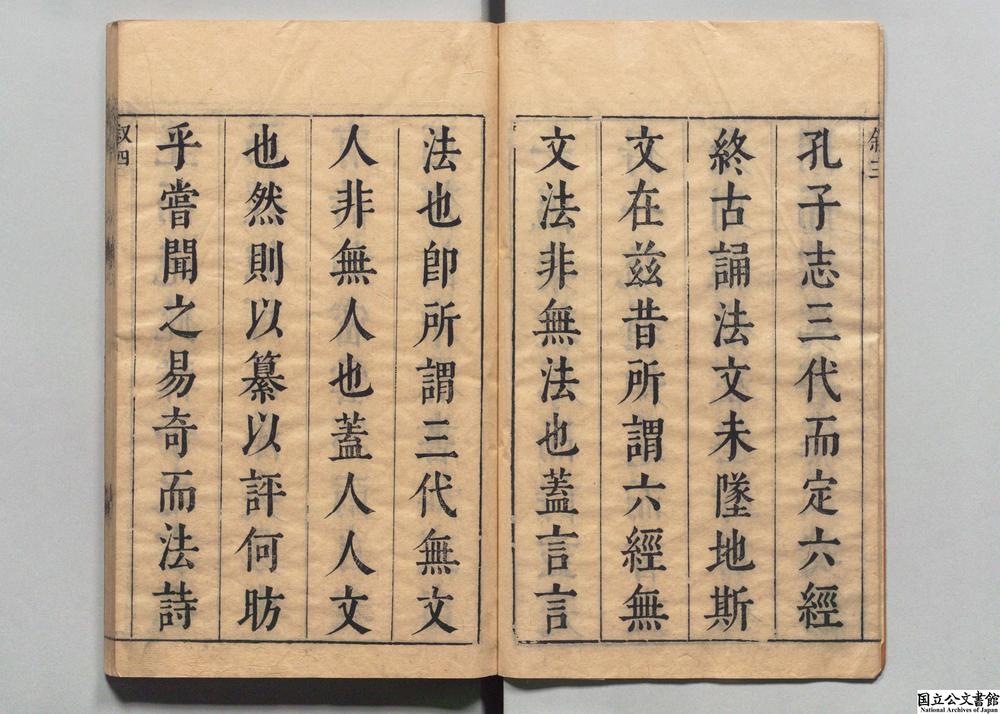 敘三
孔子志三代而定六經
終古誦法文未墜地斯
文在茲昔所謂六經無
文法非無法也蓋言言
法也卽所謂三代無文
人非無人也蓋人人文
也然則以纂以評何昉
乎嘗聞之易奇而法詩
叙四
国立公文書館
National Archives of Japan